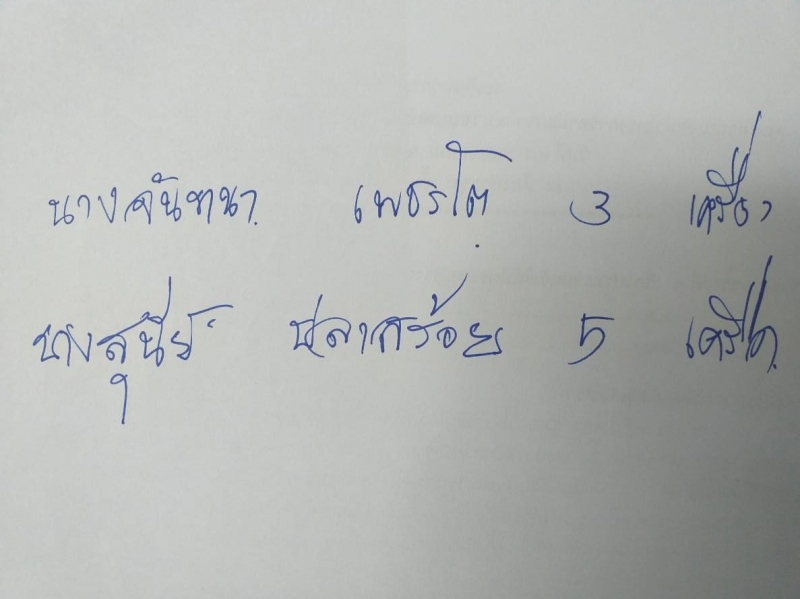 นางจันทนา เพชรโต 3 เครื่อง
นางสุนีย์ ปลาสร้อย 5 เครื่อง